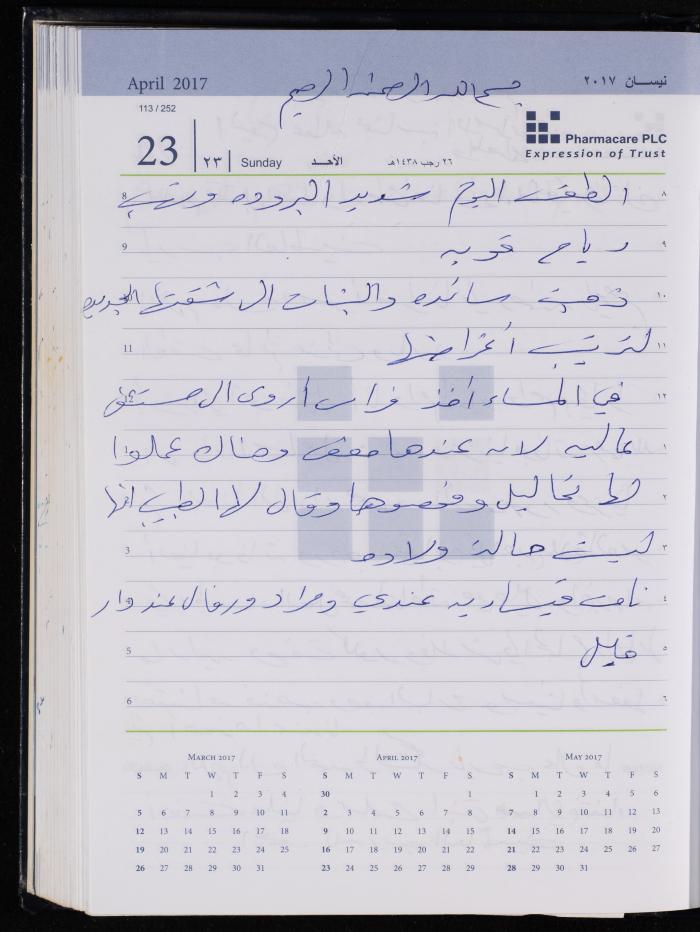 April 2017
نيسان ٢٠١٧
بسم الله الرحمن الرحيم
113 / 252
23
٢٣
Sunday
الأحــد
٢٦ رجب ١٤٣٨هـ
Pharmacare PLC
Expression of Trust
8 الطقس اليوم شديد البروده وتهب ٨
9 رياح قويه ٩
10 ذهبت سائده والبنات الى شقتها الجديده ١٠
11 لترتيب أغراضها ١١
12 في المساء أخذ فراس أروى الى مستشفى ١٢
1 عاليه لانه عندها مغص وهناك عملوا ١
2 لها تحاليل وفحصوها وقال لها الطبيب انها ٢
3 ليست حالة ولاده ٣
4 نامت قيساريه عندي ومراد ورفال عند دار ٤
5 ٥
6 ٦
March 2017
S M T W T F S
1 2 3 4
5 6 7 8 9 10 11
12 13 14 15 16 17 18
19 20 21 22 23 24 25
26 27 28 29 30 31
April 2017
S M T W T F S
30 1
2 3 4 5 6 7 8
9 10 11 12 13 14 15
16 17 18 19 20 21 22
23 24 25 26 27 28 29
May 2017
S M T W T F S
1 2 3 4 5 6
7 8 9 10 11 12 13
14 15 16 17 18 19 20
21 22 23 24 25 26 27
28 29 30 31